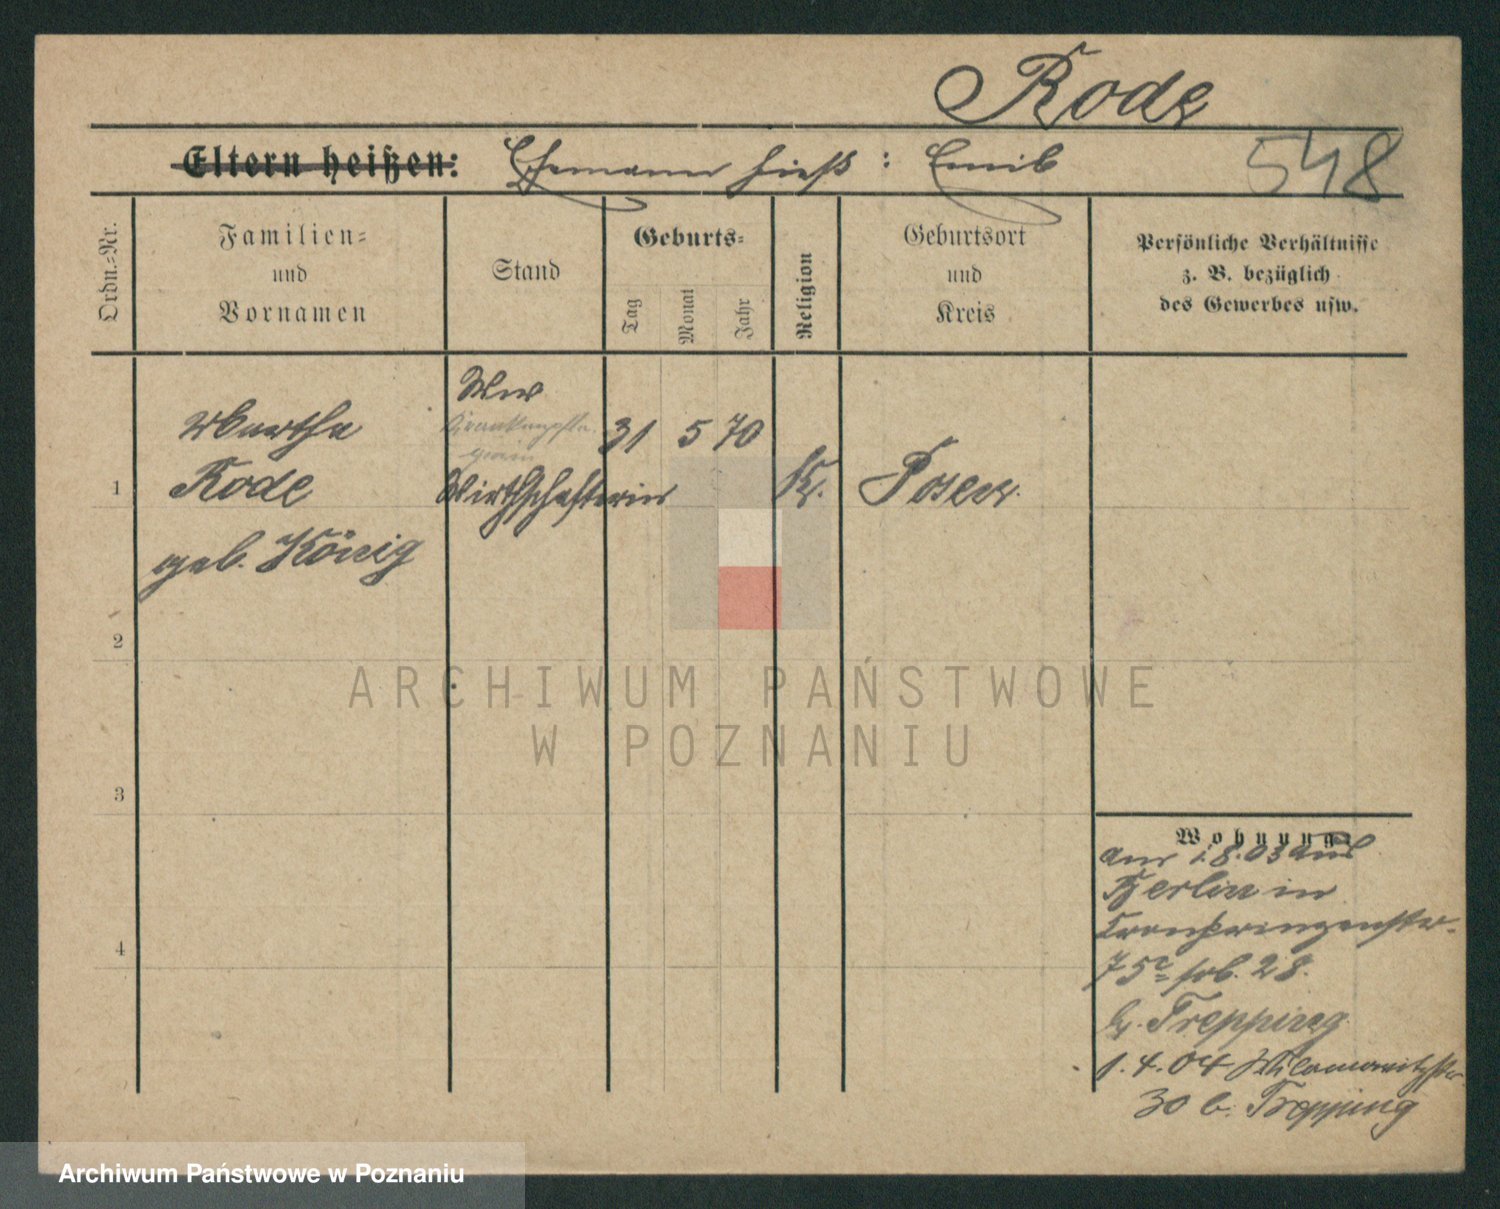 Rode
Eltern heißen: Ehemann hieß: Emil
548
Ordn.-Nr.
Familien-
und
Vornamen
Stand
Geburts-
Tag
Monat
Jahr
Religion
Geburtsort
und
Kreis
Persönliche Verhältnisse
z. B. bezüglich
des Gewerbes usw.
1
Martha
Rode
geb. König
Ww
Wirthschafterin
31 5 70
K.
Posen
2
3
4
Wohnung
am 1.8.03 aus
Berlin in
Kronprinzenstr.
b. Trepping
1.4.04
30 b. Trepping
ARCHIWUM PAŃSTWOWE
W POZNANIU
Archiwum Państwowe w Poznaniu